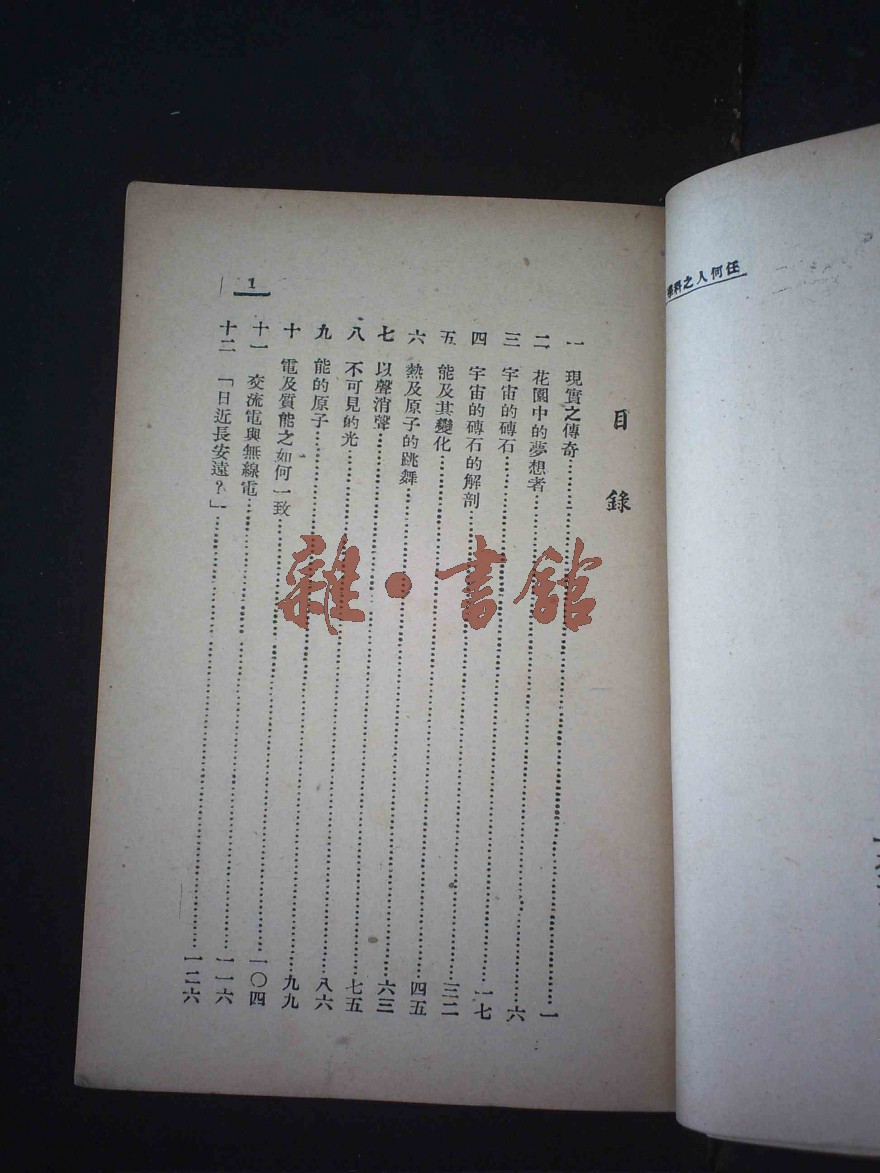 任何人之科學
目錄
一 現實之傳奇……一
二 花園中的夢想者……六
三 宇宙的磚石……一七
四 宇宙的磚石的解剖……三二
五 能及其變化……四五
六 熱及原子的跳舞……六三
七 以聲消聲……七五
八 不可見的光……八六
九 能的原子……九九
十 電及質能之如何一致……一〇四
十一 交流電與無線電……一一六
十二 「日近長安遠?」……一二六
1
雜·書館